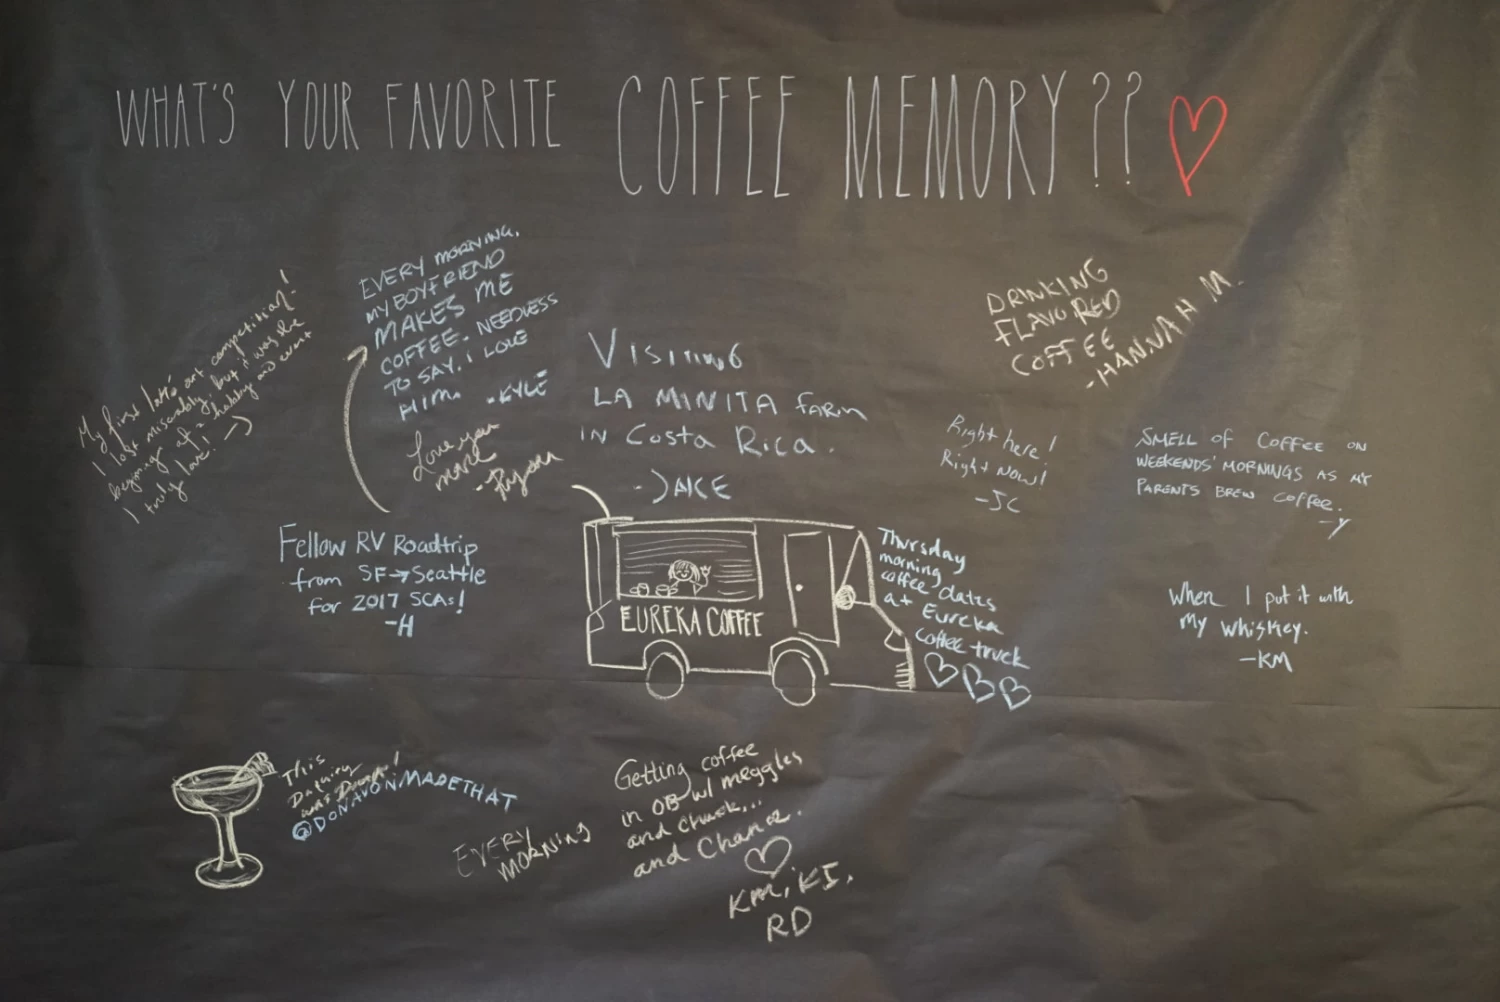 WHAT'S YOUR FAVORITE COFFEE MEMORY??
My first latte art competition!
I lost miserably, but it was the
beginning of a hobby and event
I truly love!
EVERY MORNING,
MY BOYFRIEND
MAKES ME
COFFEE. NEEDLESS
TO SAY, I LOVE
HIM. -KYLE
Love you
more
Fellow RV Roadtrip
from SF→Seattle
for 2017 SCAs!
-H
VISITING
LA MINITA FARM
IN Costa Rica.
-JAKE
DRINKING
FLAVORED
COFFEE
-HANNAH M.
Right here!
Right Now!
-JC
SMELL of COFFEE ON
WEEKENDS' MORNINGS AS MY
PARENTS BREW COFFEE.
-Y
EUREKA COFFEE
Thursday
morning
coffee dates
at Eureka
coffee truck
When I put it with
My whiskey.
-KM
This
Daquiry
was
@DONAVONMADETHAT
EVERY
MORNING
Getting coffee
in OB w/ meggles
and Chuck...
and Chance.
KM, KI,
RD